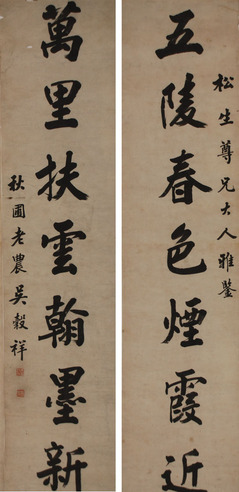 松生尊兄大人雅鑒
五陵春色煙霞近
萬里扶雲翰墨新
秋圃老農吳穀祥